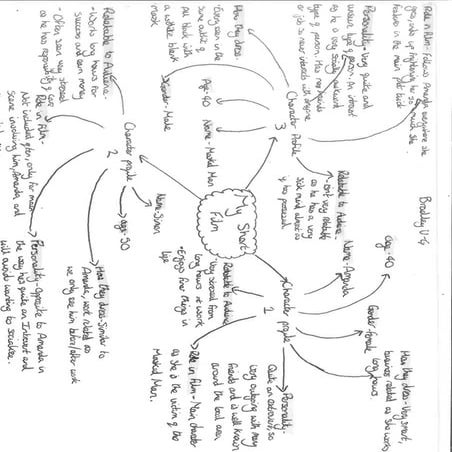 Bradley U-4
My Short
Film
Character Profile
3
Role in Film - Follows Amanda everywhere she
goes, ends up frightening her so much she
features in the main plot
Personality - Very quiet and
unusual type of person. An introvert
as he is very socially awkward
type of person. Has no friends
or job so never interacts with anyone
How they dress
Every seen in the
same outfit of
all black with
a white blank
mask.
Age - 40
Gender - Male
Name - Masked Man
Relatable to Audience
- isn't very relatable
as he has a very
sick mind almost as
if possessed
Character profile
1
Name - Amanda
Age - 40
Gender female
How they dress - Very smart,
business related as she works
long hours.
Personality -
Quite an extrovert, so
very outgoing with many
friends and is well known
around the local area
Role in Film - Main character
as she is the victim of the
Masked Man.
Relatable to Audience
Very stressed from
long hours at work
- Enjoys finer things in
life
Character profile
2
Name - Simon
age - 50
How they dress - Similar to
Amanda, work related as
we only see him before/after work
Personality - Opposite to Amanda in
the way he's quite an Introvert and
will avoid wanting to socialise.
Role in Film -
Not included often, only for main
scene involving him, Amanda, and
Relatable to Audience -
- Works long hours for
success and earn money
- Often seen very stressed
as he has